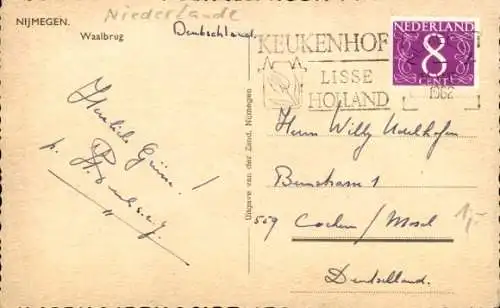 NIJMEGEN.
Waalbrug
Niederlande
Deutschland
KEUKENHOF
LISSE
HOLLAND
1962
NEDERLAND
8
CENT
Herzliche Grüsse!
Uitgave van der Zand, Nijmegen
Herrn Willy
1
559 Cochem/Mosel
Deutschland.
1,-